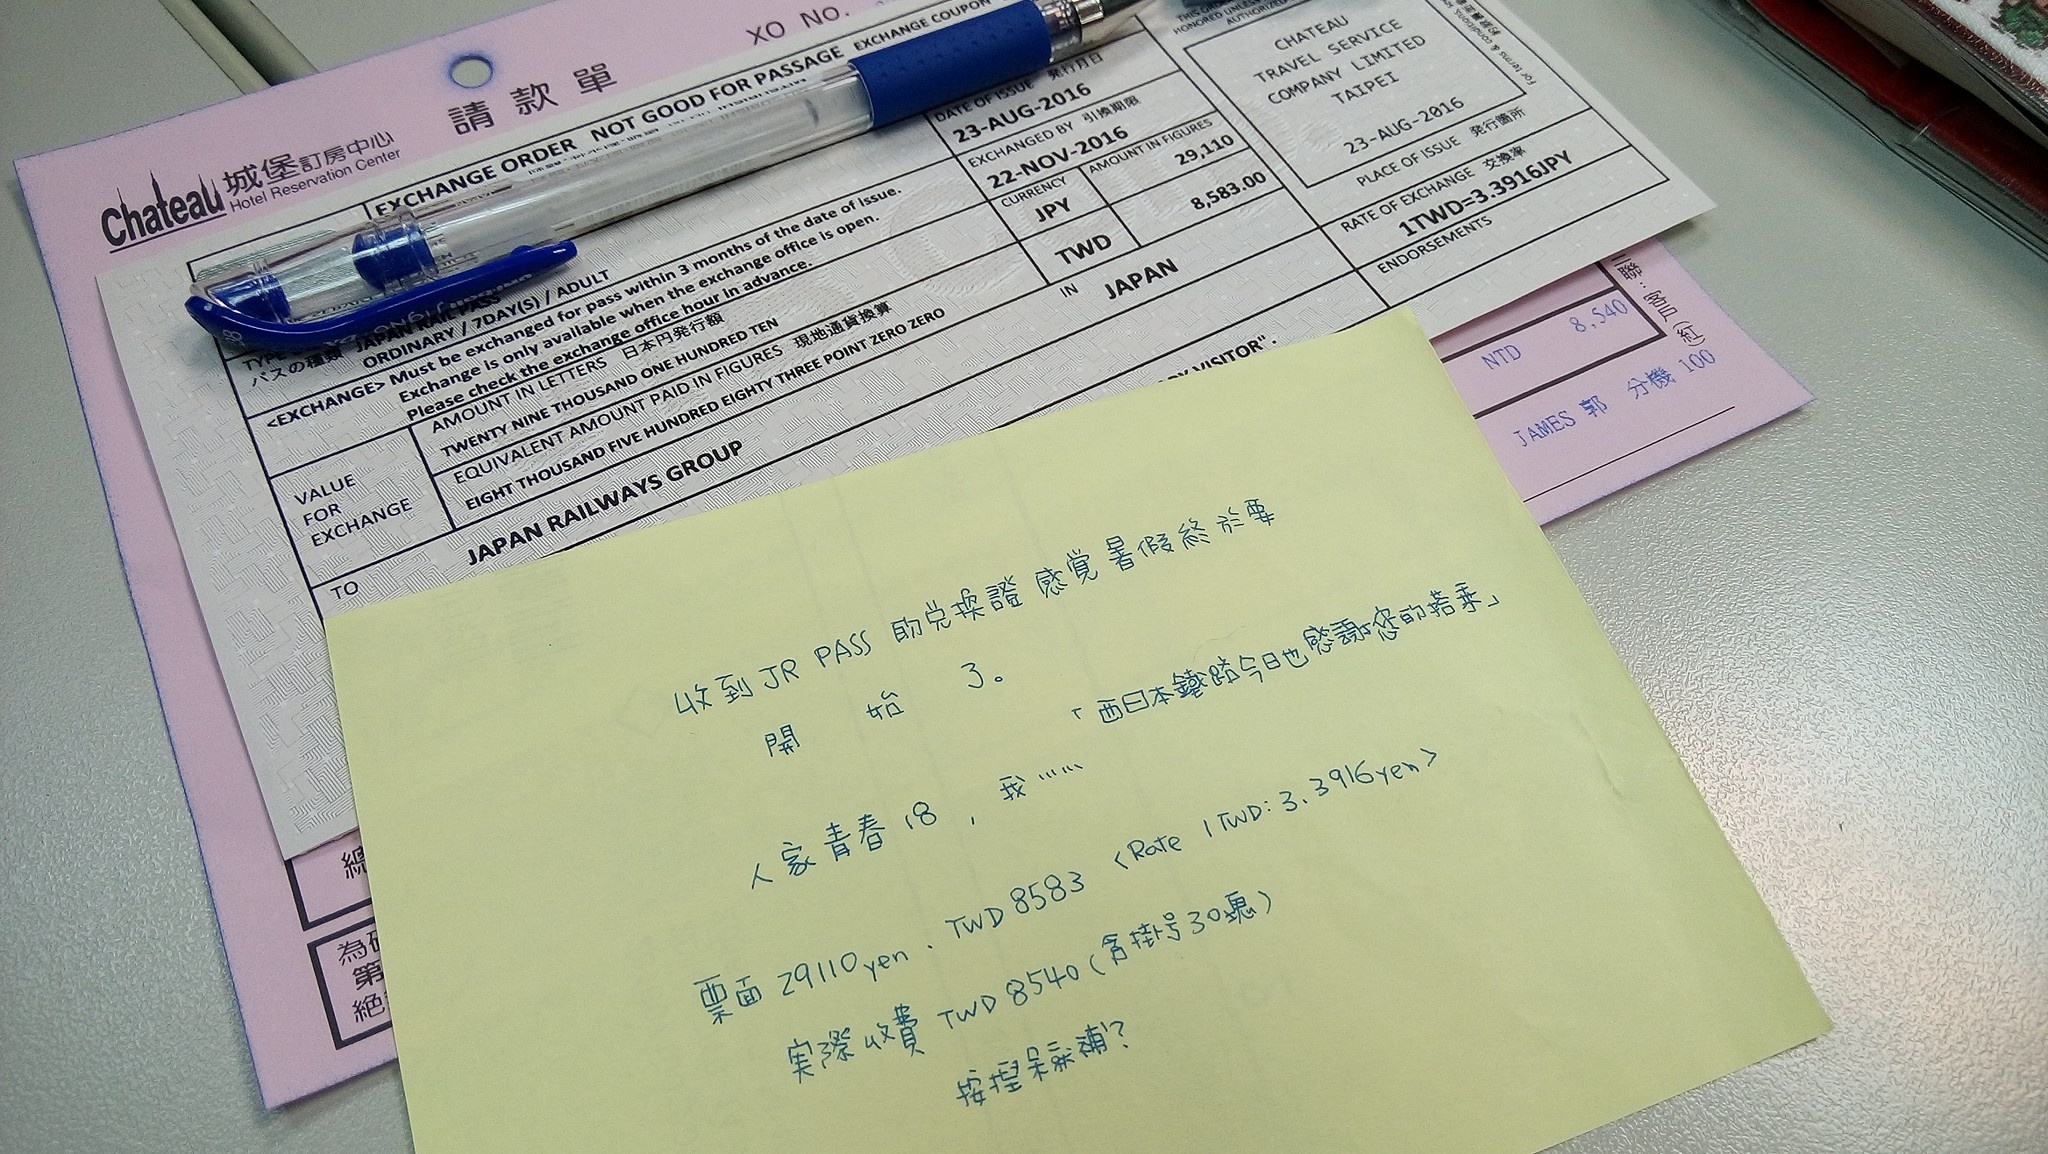 XO No.
請款單
Chateau 城堡訂房中心
Hotel Reservation Center
EXCHANGE ORDER NOT GOOD FOR PASSAGE EXCHANGE COUPON
DATE OF ISSUE 発行月日
23-AUG-2016
EXCHANGED BY 引換期限
22-NOV-2016
CURRENCY
AMOUNT IN FIGURES
JPY
29,110
TWD
8,583.00
CHATEAU
TRAVEL SERVICE
COMPANY LIMITED
TAIPEI
23-AUG-2016
PLACE OF ISSUE 発行箇所
RATE OF EXCHANGE 交換率
1TWD=3.3916JPY
ENDORSEMENTS
パスの種類 JAPAN RAIL PASS
ORDINARY / 7DAY(S) / ADULT
<EXCHANGE> Must be exchanged for pass within 3 months of the date of issue.
Exchange is only available when the exchange office is open.
Please check the exchange office hour in advance.
VALUE
FOR
EXCHANGE
AMOUNT IN LETTERS 日本円発行額
TWENTY NINE THOUSAND ONE HUNDRED TEN
EQUIVALENT AMOUNT PAID IN FIGURES 現地通貨換算
EIGHT THOUSAND FIVE HUNDRED EIGHTY THREE POINT ZERO ZERO
TO
JAPAN RAILWAYS GROUP
IN
JAPAN
VISITOR".
NTD 8,540
JAMES 郭 分機 100
收到JR PASS 的兌換證 感覺暑假終於要
開始了。
人家青春18，我……「西日本鐵路今日也感謝您的搭乘」
票面 29110yen、TWD 8583 <Rate 1TWD: 3.3916yen>
実際收費 TWD 8540 (含掛号30塊)
按捏呆蘇補?